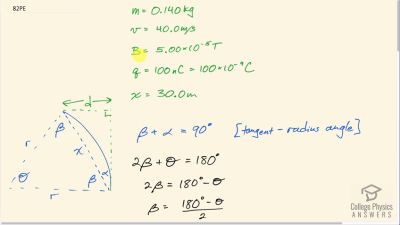 82PE
m = 0.140 kg
v = 40.0 m/s
B = 5.00×10⁻⁵ T
q = 100 nC = 100×10⁻⁹ C
x = 30.0 m
d
β
r
x
α
θ
β
r
β + α = 90° [tangent - radius angle]
2β + θ = 180°
2β = 180° - θ
β = (180° - θ)/2
College Physics
ANSWERS